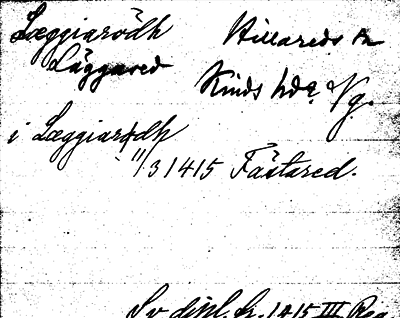 Læggiarödh Hillareds sn
Läggared Kinds hd Vg.
i Læggiarødh
11/3 1415 Fästared.
Sv dipl. fr. 1415 III Reg.